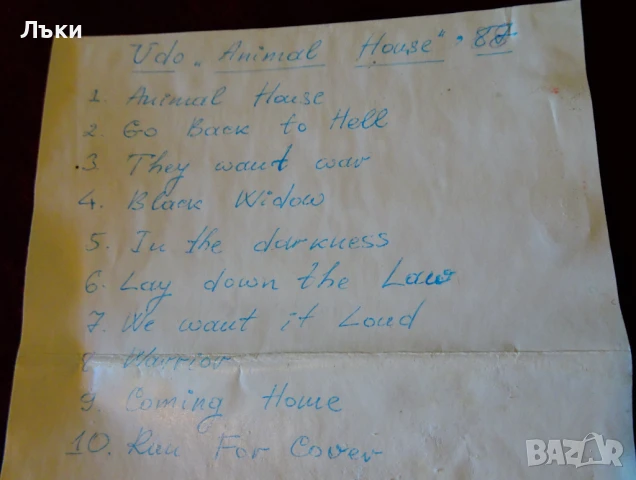 Лъки
Udo „Animal House" '87
1. Animal House
2. Go Back to Hell
3. They want war
4. Black Widow
5. In the darkness
6. Lay down the Law
7. We want it Loud
8. Warrior
9. Coming Home
10. Run For Cover
BAZAR